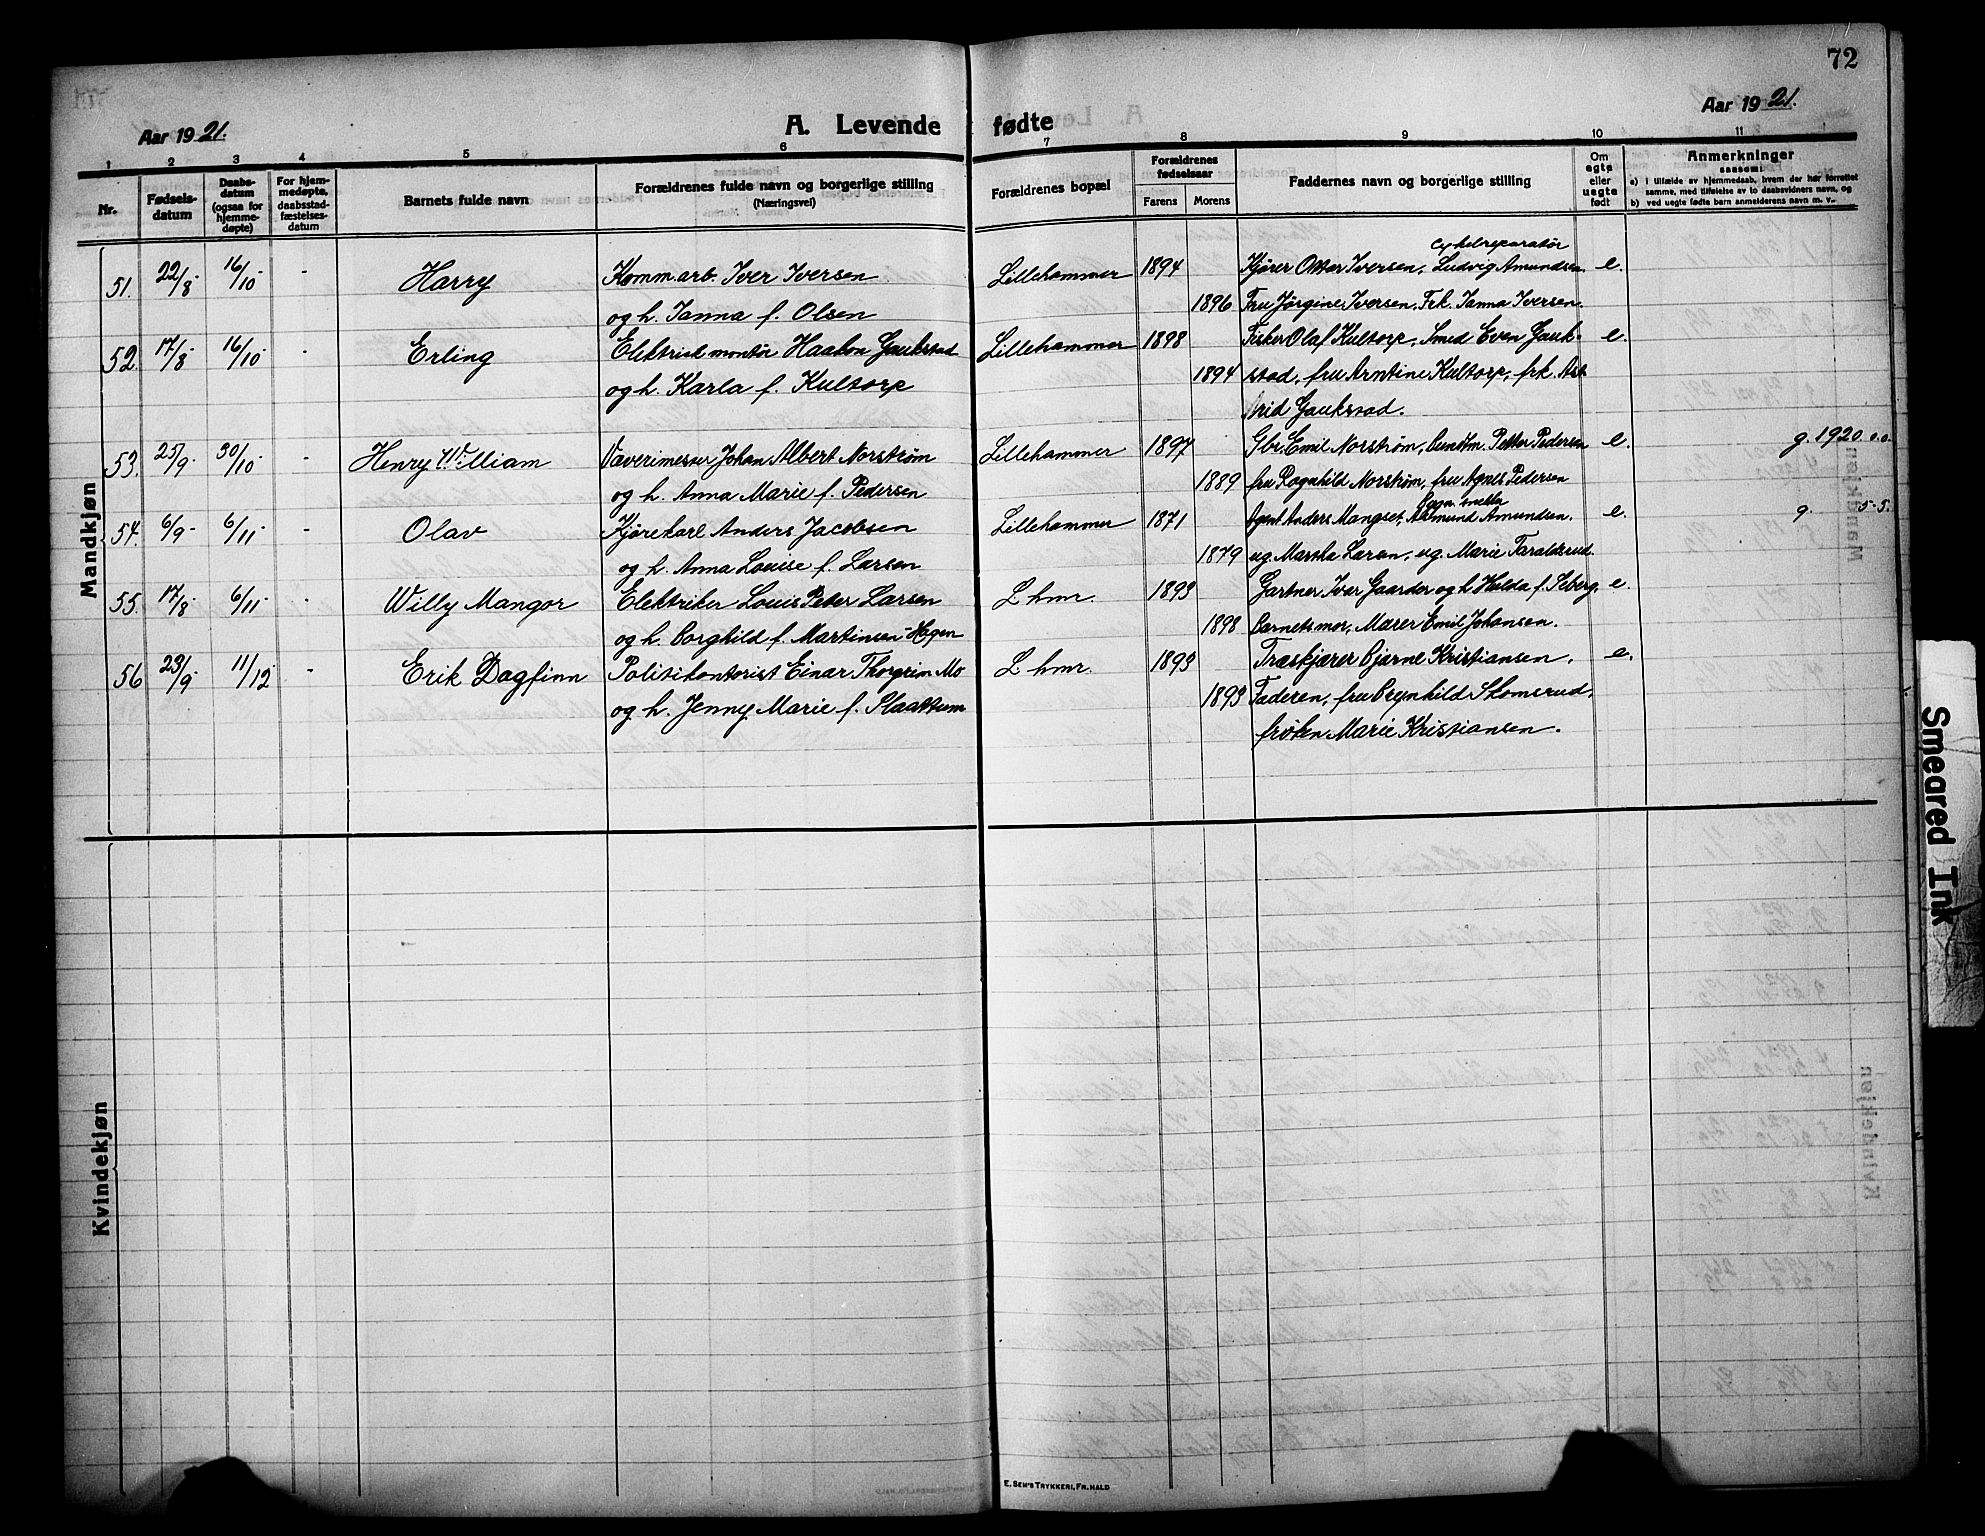 72
Aar 1921.
A. Levende fødte
Aar 1921.
1 2 3 4 5 6 7 8 9 10 11
Nr.
Fødsels-
datum
Daabs-
datum
(ogsaa for
hjemme-
døpte)
For hjem-
medøpte,
daabsstad-
fæstelses-
datum
Barnets fulde navn
Forældrenes fulde navn og borgerlige stilling
(Næringsvei)
Forældrenes bopæl
Forældrenes
fødselsaar
Farens Morens
Faddernes navn og borgerlige stilling
Om
egte
eller
uegte
født
Anmerkninger
saasom:
a) i tilfælde av hjemmedaab, hvem der har forrettet
samme, med tilføielse av to daabsvidners navn, og
b) ved uegte fødte barn anmelderens navn m. v.
Mandkjøn
Cykelreparatør
51. 22/8 16/10 - Harry Komm.arb. Iver Iversen Lillehammer 1894 Kjører Ottar Iversen, Ludvig Amundsen e.
og h. Janna f. Olsen 1896 Fru Jørgine Iversen, Frk. Janna Iversen.
52. 17/8 16/10 - Erling Elektrisk montør Haakon Gaukstad Lillehammer 1898 Fisker Olaf Kultorp, Smed Even Gauk- e.
og h. Karla f. Kultorp 1894 stad, fru Arntine Kultorp, frk. Ast
rid Gaukstad.
53. 25/9 30/10 - Henry William Væverimester Johan Albert Norstrøm Lillehammer 1897 Gbr. Emil Norstrøm, Buntm. Petter Pedersen e. g. 1920. o.o.
og h. Anna Marie f. Pedersen 1889 fru Ragnhild Norstrøm, fru Agnes Pedersen
54. 6/9 6/11 - Olav Kjørekarl Anders Jacobsen Lillehammer 1871 Agent Anders Mangset, Amund Amundsen. e. g. 5-5.
og h. Anna Louise f. Larsen 1879 ug. Martha Larsen, ug. Marie Taralderud.
55. 17/8 6/11 - Willy Mangor Elektriker Louis Peter Larsen L.hmr. 1893 Gartner Ivar Gaarder og h. Hulda f. Seberg, e.
og h. Borghild f. Martinsen-Hagen 1898 Barnets mor, Maler Emil Johansen.
56 23/9 11/12 - Erik Dagfinn Politikontorist Einar Thorgrim Mo L.hmr. 1893 Træskjærer Bjarne Kristiansen, e.
og h. Jenny Marie f. Slaattum 1893 Faderen, fru Brynhild Skomsrud,
frøken Marie Kristiansen.
Kvindekjøn
E. Sem's Trykkeri, Fr.hald
Smeared Ink